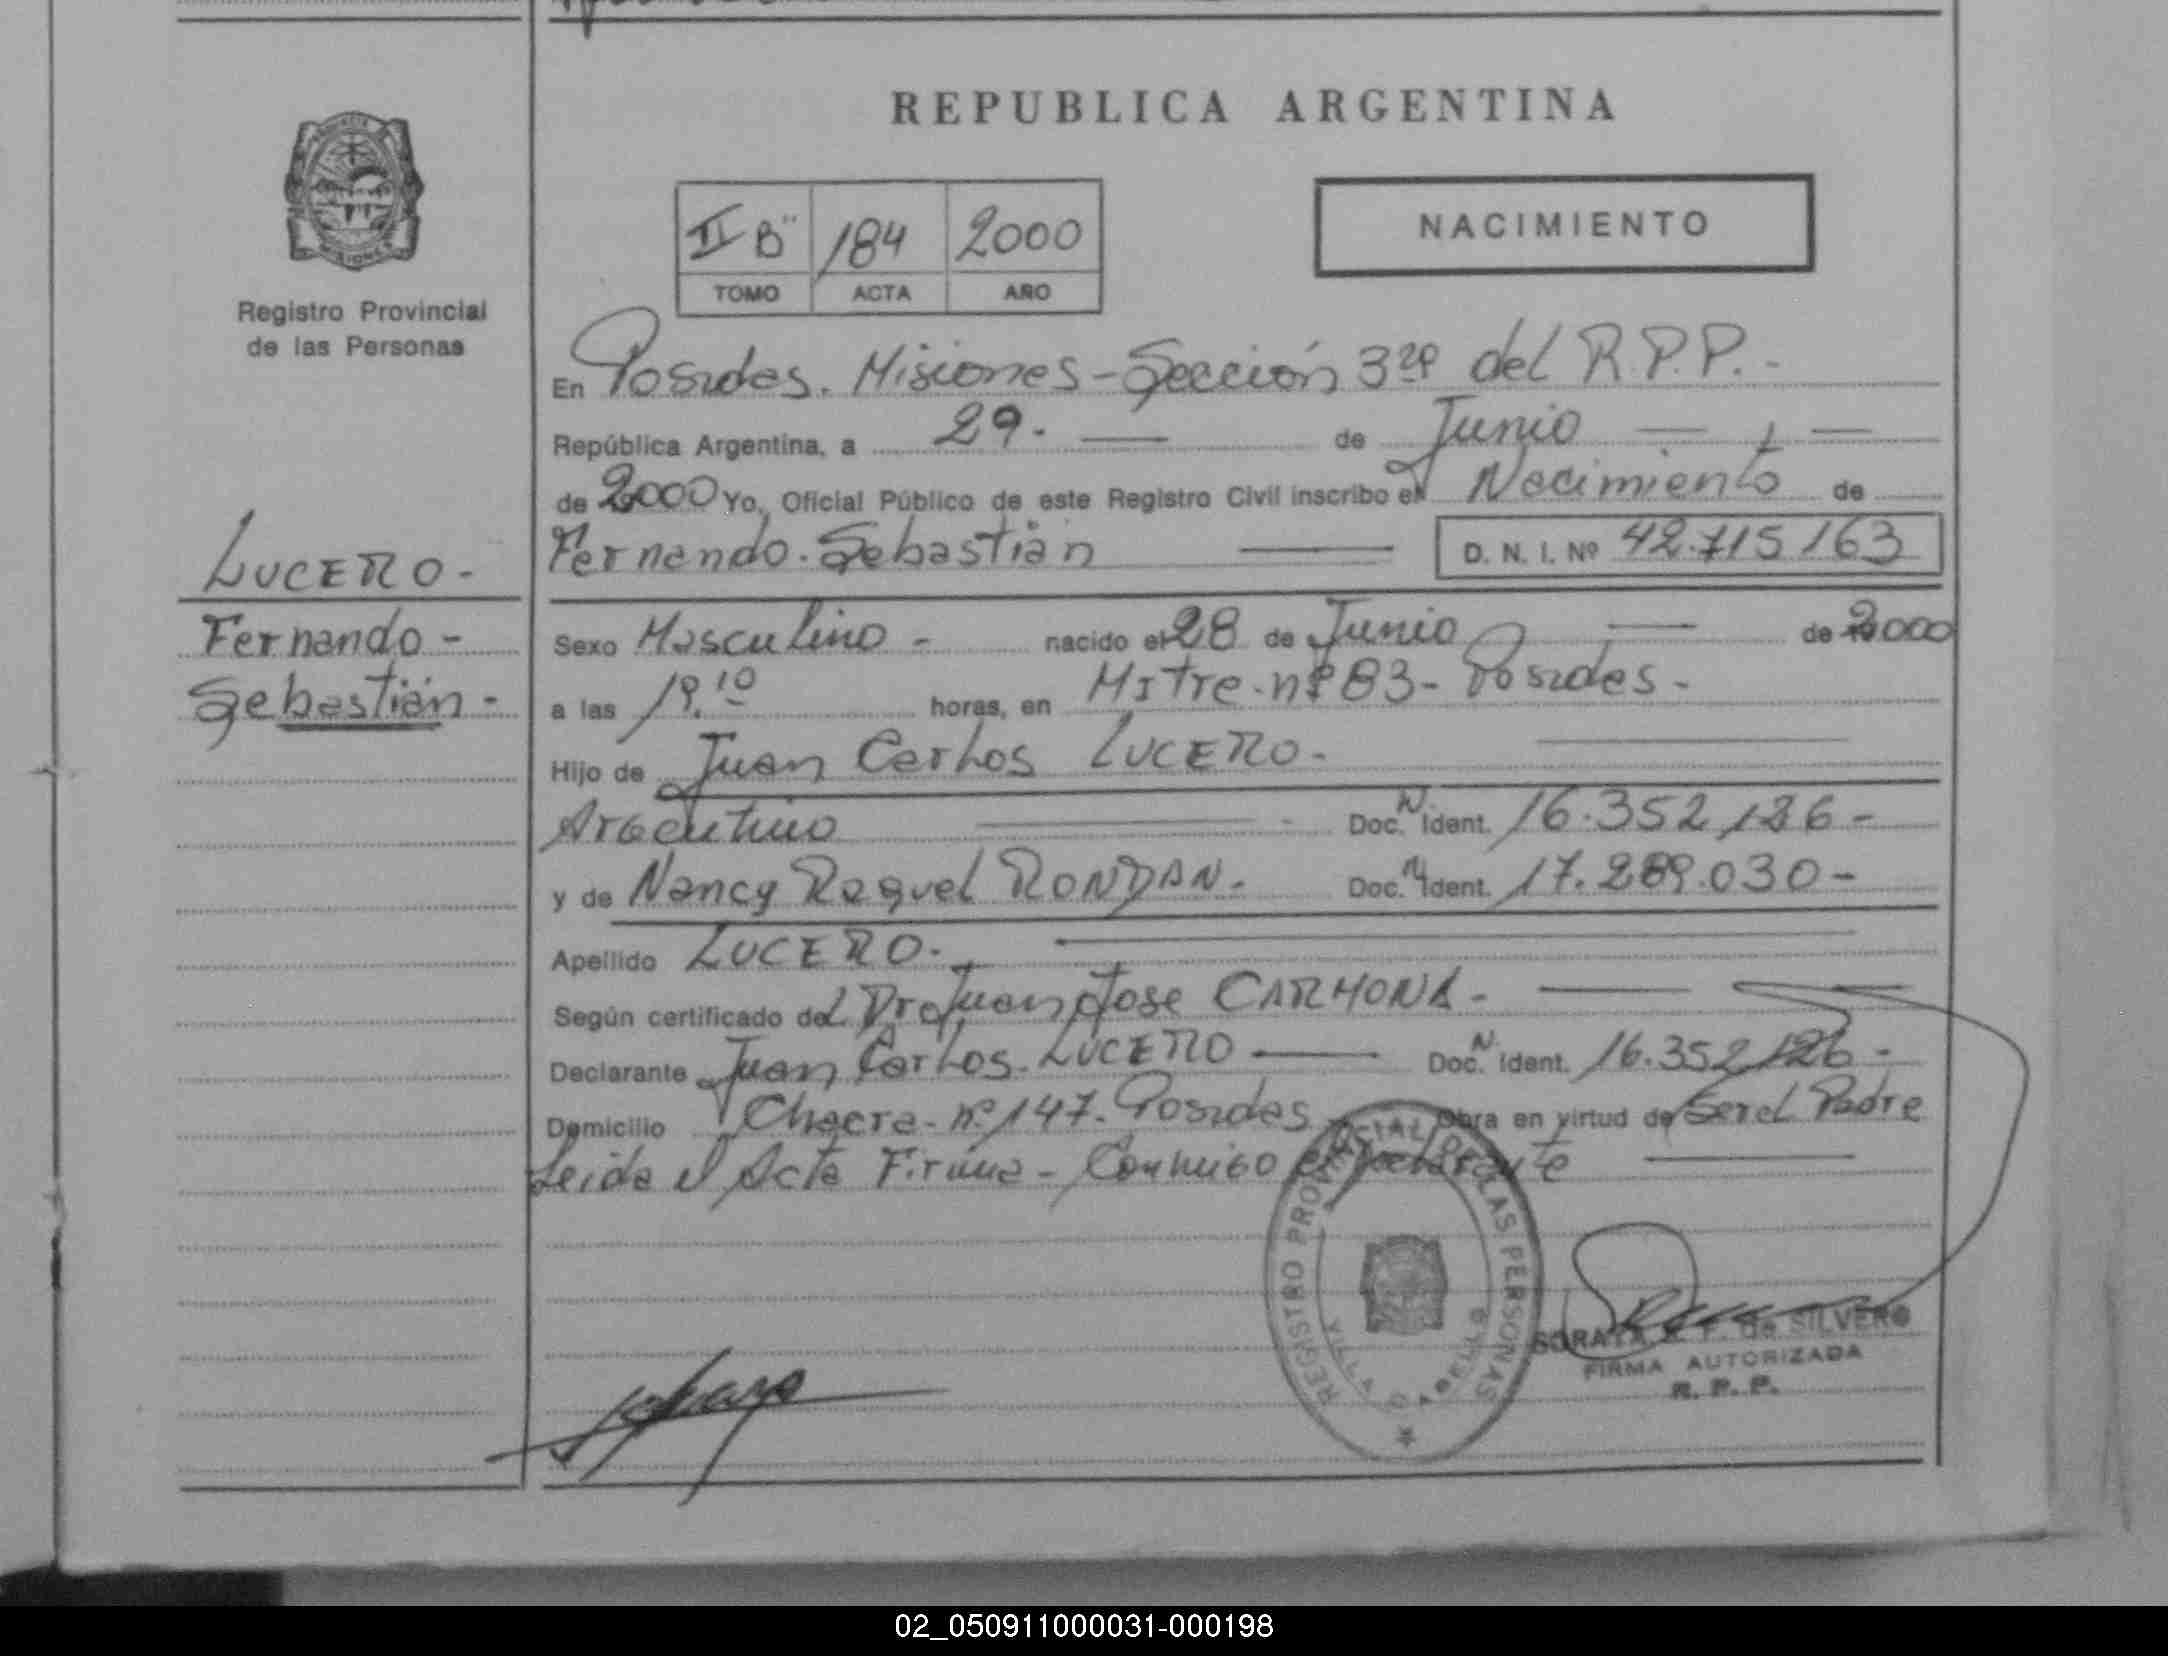 REPUBLICA ARGENTINA
II B" 184 2000
TOMO ACTA AÑO
NACIMIENTO
Registro Provincial
de las Personas
En Posadas. Misiones - Sección 3ra del R.P.P. -
República Argentina, a 29. — de Junio — , —
de 2000 Yo, Oficial Público de este Registro Civil inscribo el Nacimiento de
Fernando. Sebastián — D. N. I. Nº 42.715 163
LUCERO -
Fernando -
Sebastián -
Sexo Masculino - nacido el 28 de Junio — de 2000
a las 19.10 horas, en Mitre - nº 83 - Posadas -
Hijo de Juan Carlos LUCERO -
Argentino — Doc. N. Ident. 16.352.126 -
y de Nancy Raquel RONDAN - Doc. N. Ident. 17.289.030 -
Apellido LUCERO -
Según certificado del Dr Juan Jose CARMONA -
Declarante Juan Carlos LUCERO — Doc. N. Ident. 16.352.126 -
Domicilio Chacra - nº 147 - Posadas Obra en virtud de Ser el Padre
Leida el Acta Firma - Conmigo el Declarante —
REGISTRO PROVINCIAL DE LAS PERSONAS
VILLA CABELLO
SORAYA F. de SILVERO
FIRMA AUTORIZADA
R. P. P.
02_050911000031-000198